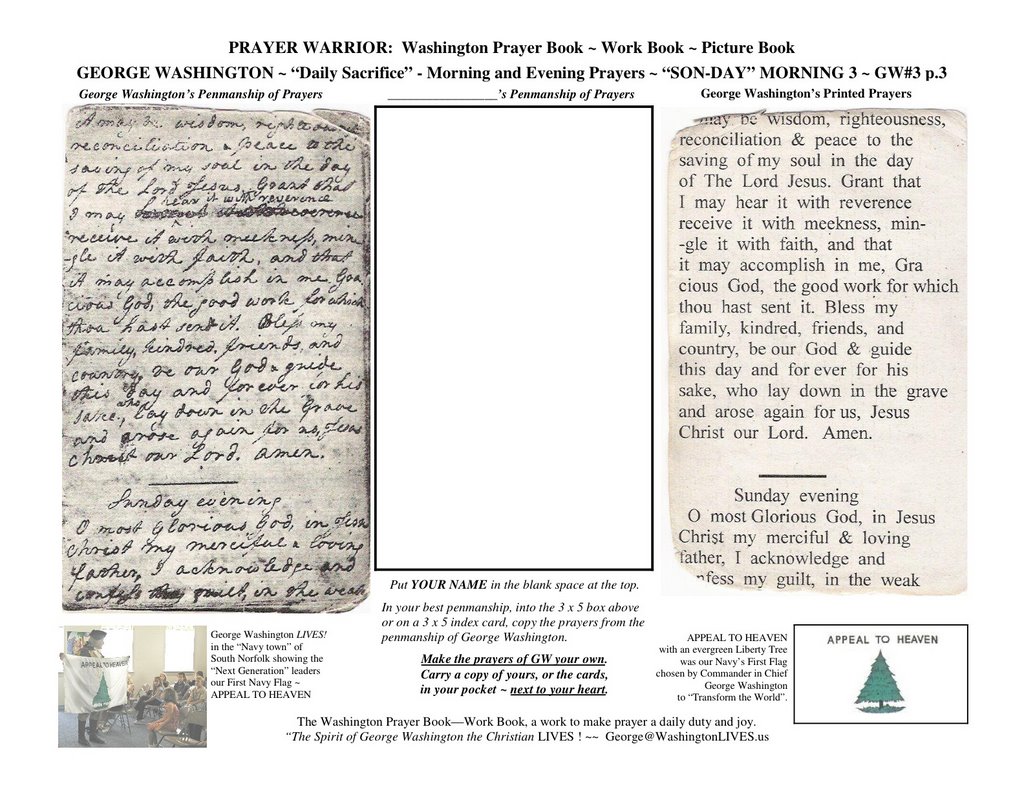 PRAYER WARRIOR: Washington Prayer Book ~ Work Book ~ Picture Book
GEORGE WASHINGTON ~ “Daily Sacrifice” - Morning and Evening Prayers ~ “SON-DAY” MORNING 3 ~ GW#3 p.3
George Washington’s Penmanship of Prayers
it may be wisdom, righteousness
reconciliation & peace to the
saving of my soul in the day
of the Lord Jesus, Grant that
hear it with reverence
I may
receive it with meekness, min
-gle it with faith, and that
it may accomplish in me Gra
cious God, the good work for which
thou hast sent it. Bless my
family, kindred, friends, and
country, be our God & guide
this day and for ever for his
who
sake, lay down in the Grave
and arose again for us, Jesus
christ our Lord. amen.
Sunday evening
O most Glorious God, in Jesus
christ my merciful & loving
father, I acknowledge and
confess my guilt, in the weak
_________________’s Penmanship of Prayers
Put YOUR NAME in the blank space at the top.
In your best penmanship, into the 3 x 5 box above
or on a 3 x 5 index card, copy the prayers from the
penmanship of George Washington.
Make the prayers of GW your own.
Carry a copy of yours, or the cards,
in your pocket ~ next to your heart.
George Washington’s Printed Prayers
may be wisdom, righteousness,
reconciliation & peace to the
saving of my soul in the day
of The Lord Jesus. Grant that
I may hear it with reverence
receive it with meekness, min-
-gle it with faith, and that
it may accomplish in me, Gra
cious God, the good work for which
thou hast sent it. Bless my
family, kindred, friends, and
country, be our God & guide
this day and for ever for his
sake, who lay down in the grave
and arose again for us, Jesus
Christ our Lord. Amen.
Sunday evening
O most Glorious God, in Jesus
Christ my merciful & loving
father, I acknowledge and
nfess my guilt, in the weak
APPEAL TO HEAVEN
George Washington LIVES!
in the “Navy town” of
South Norfolk showing the
“Next Generation” leaders
our First Navy Flag ~
APPEAL TO HEAVEN
APPEAL TO HEAVEN
with an evergreen Liberty Tree
was our Navy’s First Flag
chosen by Commander in Chief
George Washington
to “Transform the World”.
APPEAL TO HEAVEN
The Washington Prayer Book—Work Book, a work to make prayer a daily duty and joy.
“The Spirit of George Washington the Christian LIVES ! ~~ George@WashingtonLIVES.us